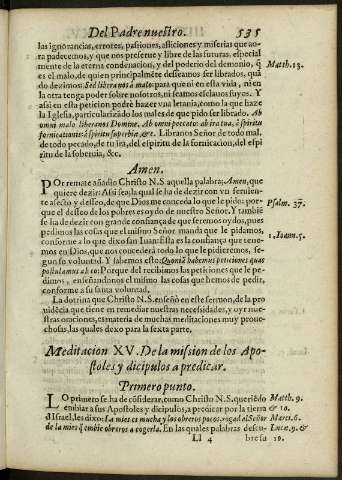 Del Padre nuestro. 535
las ignorancias, errores, passiones, afliciones y miserias que aora
padecemos, y que nos preserue y libre de las futuras, especialmente
de la eterna condenacion, y del poderio del demonio, q̃
es el malo, de quien principalmẽte desseamos ser librados, quã
do dezimos: Sed libera nos à malo: para que ni en esta vida, ni en
la otra tenga poder sobre nosotros, ni seamos esclauos suyos. Y
assi en esta peticion podrè hazer vna letania, como la que haze
la Iglesia, particularizãdo los males de que pido ser librado. Ab
omni malo liberanos Domine. Ab omni peccato: ab ira tua, à spiritu
fornicationis: à spiritu superbiæ, &c. Libranos Señor de todo mal,
de todo pecado, de tu ira, del espiritu de la fornicacion, del espiritu
de la soberuia, &c.
Matth. 13.
Amen.
POr remate añadio Christo N. S. aquella palabra; Amen, que
quiere dezir: Assi sea, la qual se ha de dezir con vn feruiente
afecto y desseo, de que Dios me conceda lo que le pido: porque
el desseo de los pobres es oydo de nuestro Señor. Y tambiẽ
se ha de dezir con grande confiança de que seremos oydos, pues
pedimos las cosas que el mismo Señor manda que le pidamos,
conforme a lo que dixo san Iuan: Esta es la confiança que tenemos
en Dios, que nos concederà todo lo que le pidieremos, segun
su voluntad. Y sabemos esto: Quoniã habemus petitiones quas
postulamus ab eo: Porque del recibimos las peticiones que le pedimos,
enseñandonos el mismo las cosas que hemos de pedir,
conforme a su santa voluntad.
Psalm. 37.
1. Ioann. 5.
La dotrina que Christo N. S. enseñò en este sermon, de la prouidẽcia
que tiene en remediar nuestras necessidades, y oyr nuestras
oraciones, es materia de muchas meditaciones muy prouechosas,
las quales dexo para la sexta parte.
Meditacion XV. De la mission de los Apostoles
y dicipulos a predicar.
Primero punto.
LO primero se ha de cõsiderar, como Christo N. S. queriẽdo
embiar a sus Apostoles y dicipulos, a predicar por la tierra
d Israel, les dixo: La mies es mucha y los obreros pocos, rogad al Señor
de la mies q̃ embie obreros a cogerla. En las quales palabras descu-
Matth. 9.
& 10.
Marci. 6.
Luce. 9. &
10.
Ll 4 bresa